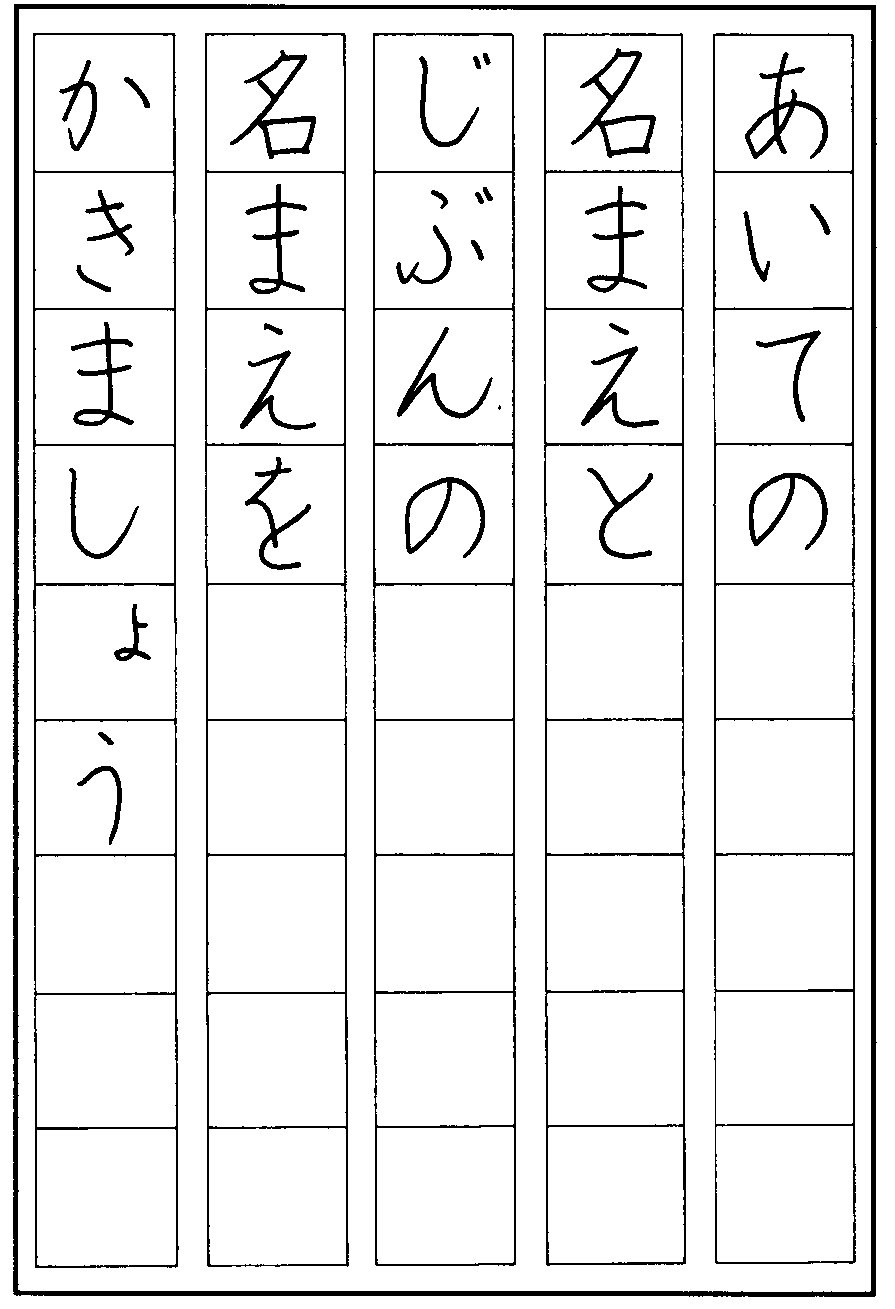 あいての
名まえと
じぶんの
名まえを
かきましょう